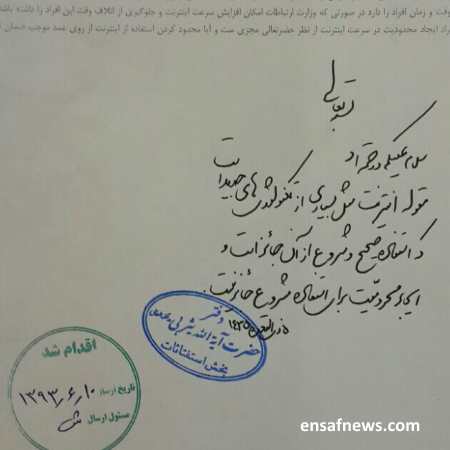 وقت و زمان افراد را دارد در صورتی که وزارت ارتباطات امکان افزایش سرعت اینترنت و جلوگیری از اتلاف وقت این افراد را داشته باشد
راد ایجاد محدودیت در سرعت اینترنت از نظر حضرتعالی مجزی ست و آیا محدود کردن استفاده از اینترنت از روی عمد موجب ضمان
بسمه تعالی
سلام علیکم و رحمة الله
مقوله اینترنت مثل بسیاری از تکنولوژی های جدید است
که استفاده صحیح و مشروع از آن جائز است و
ایجاد محدودیت برای استفاده مشروع جائز نیست.
ذی القعده ۱۴۳۵
دفتر
حضرت آیة الله
بخش استفتائات
اقدام شد
تاریخ ارسال ۱۳۹۳٫۶٫۱۰
مسئول ارسال
ensafnews.com